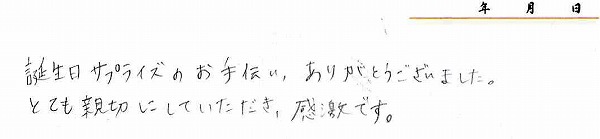 年 月 日
誕生日サプライズのお手伝い、ありがとうございました。
とても親切にしていただき、感激です。